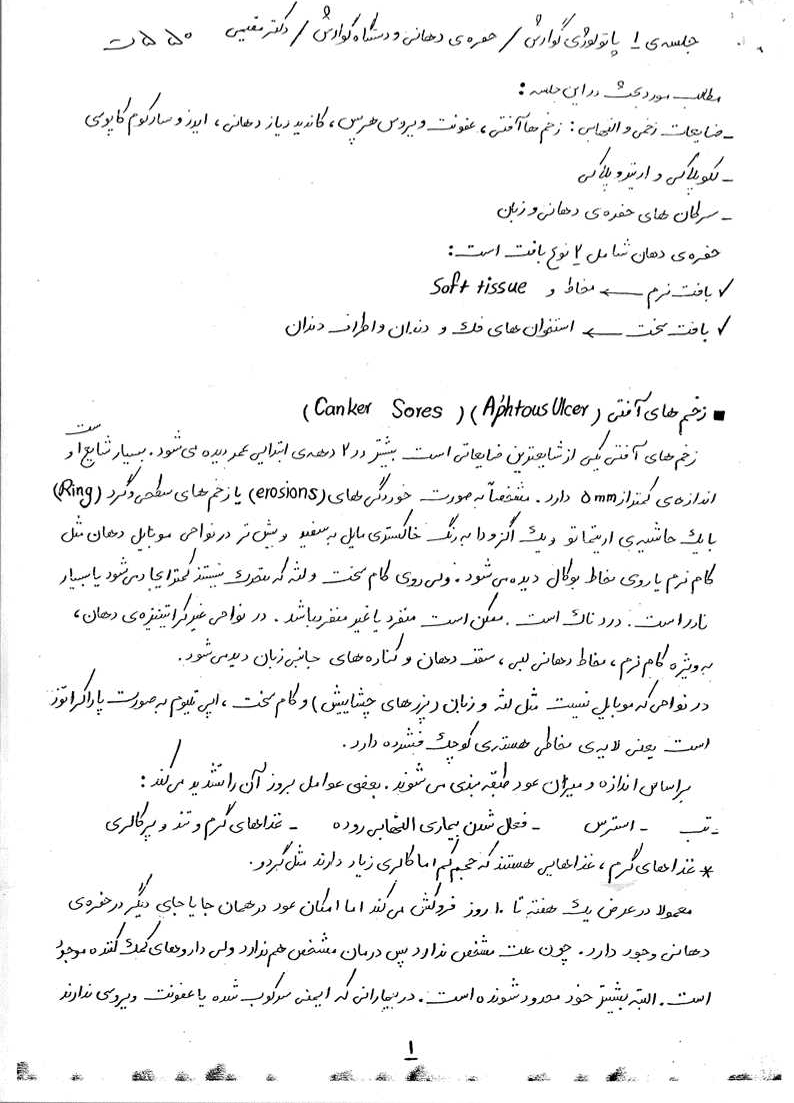 جلسه ی ۱ پاتولوژی گوارش / حفره ی دهانی و دستگاه گوارش / دکتر مقیمی
مطالب مورد بحث در این جلسه :
- ضایعات زخمی و التهابی : زخم ها آفتی ، عفونت ویروس هرپس ، کاندیدیاز دهانی ، ایدز و سارکوم کاپوسی
- لکوپلاکی و اریتروپلاکی
- سرطان های حفره ی دهانی و زبان
حفره ی دهان شامل ۲ نوع بافت است :
✓ بافت نرم ← مخاط و Soft tissue
✓ بافت سخت ← استخوان های فک و دندان و اطراف دندان
■ زخم های آفتی (Aphtous Ulcer) (Canker Sores)
زخم های آفتی یکی از شایعترین ضایعاتی است بیشتر در ۲ دهه ی ابتدایی عمر دیده می شود . بسیار شایع است
اندازه ی کمتر از ۵mm دارد . مشخصاً به صورت خوردگی های (erosions) یا زخم های سطحی و گرد (Ring)
با یک حاشیه ی اریتماتو و یک اگزودا به رنگ خاکستری مایل به سفید و بیش تر در نواحی موبایل دهان مثل
کام نرم یا روی مخاط بوکال دیده می شود . ولی روی کام سخت و لثه که متحرک نیستند کمتر ایجاد می شود یا بسیار
نادر است . دردناک است . ممکن است منفرد یا غیر منفرد باشد . در نواحی غیر کراتینیزه ی دهان ،
به ویژه کام نرم ، مخاط دهانی لبی ، سقف دهان و کناره های جانبی زبان دیده می شود .
در نواحی که موبایل نیست مثل لثه و زبان (پرزهای چشاییش) و کام سخت ، اپی تلیوم به صورت پاراکراتوز
است یعنی لایه ی مخاطی هسته ی کوچک فشرده دارد .
براساس اندازه و میزان عود طبقه بندی می شوند . بعضی عوامل بروز آن را تشدید می کند :
- تب - استرس - فعال شدن بیماری التهابی روده - غذاهای گرم و تند و پرکالری
* غذاهای گرم ، غذاهایی هستند که حجم کم اما کالری زیاد دارند مثل گردو .
معمولا در عرض یک هفته تا ۱۰ روز فروکش می کند اما امکان عود در همان جا یا جای دیگر در حفره ی
دهانی وجود دارد . چون علت مشخص ندارد پس درمان مشخص هم ندارد ولی داروهای کمک کننده موجود
است . البته بیشتر خود محدود شونده است . در بیمارانی که ایمنی سرکوب شده یا عفونت ویروسی ندارند
۱